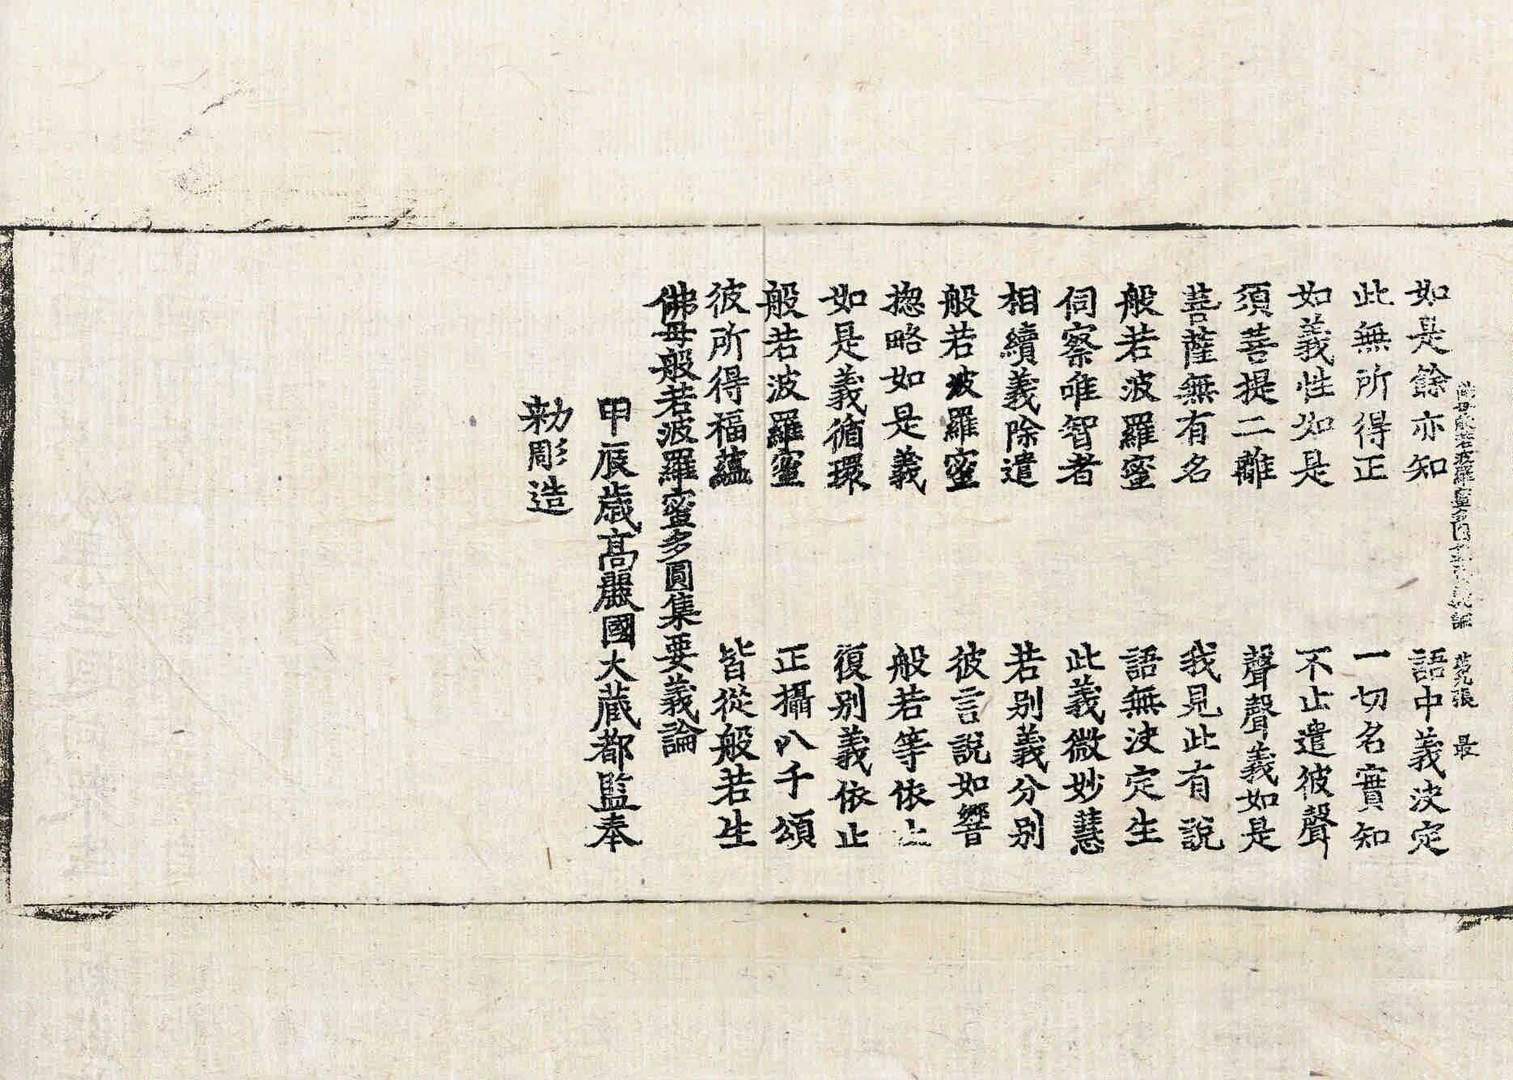 佛母般若波羅蜜多圓集要義論 張 最
如是餘亦知 語中義決定
此無所得正 一切名實知
如義性如是 不止遣彼聲
須菩提二離 聲聲義如是
菩薩無有名 我見此有說
般若波羅蜜 語無決定生
伺察唯智者 此義微妙慧
相續義除遣 若別義分別
般若波羅蜜 彼言說如響
揔略如是義 般若等依止
如是義循環 復別義依止
般若波羅蜜 正攝八千頌
彼所得福蘊 皆從般若生
佛母般若波羅蜜多圓集要義論
甲辰歲高麗國大藏都監奉
勅彫造